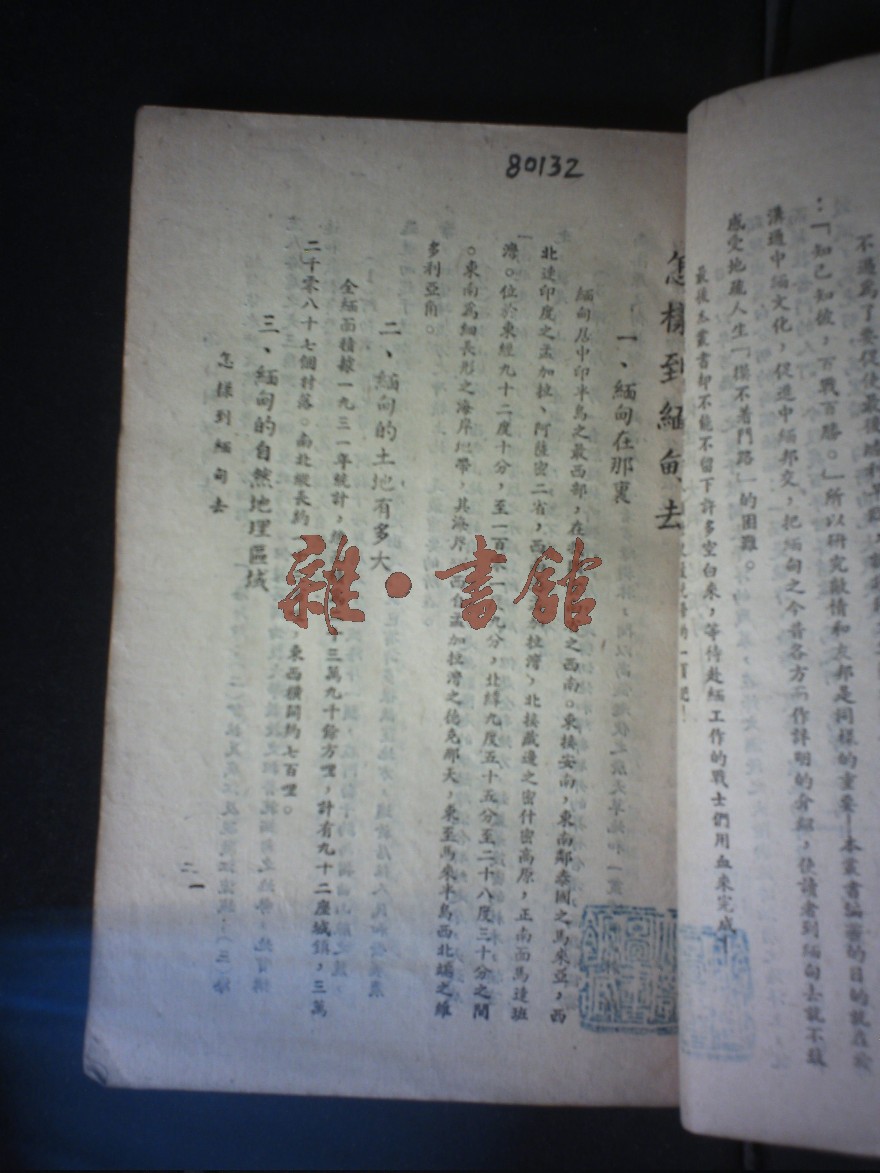 80132
不過為了要促使最後勝利早
：「知己知彼，百戰百勝。」所以研究敵情和友邦是同樣的重要——本叢書編纂的目的就在於
溝通中緬文化，促進中緬邦交，把緬甸之今昔各方面作詳明的介紹，使讀者到緬甸去就不致
感受地疏人生「摸不着門路」的困難。
最後本叢書却不能不留下許多空白來，等待赴緬工作的戰士們用血來完成
怎樣到緬甸去
一、緬甸在那裏
緬甸居中印半島之最西部，在 之西南。東接安南，東南鄰泰國之馬來亞，西
北達印度之孟加拉、阿薩密二省，西 拉灣，北接藏邊之密什密高原，正南面馬達班
灣。位於東經九十二度十分，至一百 九分，北緯九度五十五分至二十八度三十分之間
。東南為細長形之海岸地帶，其海岸 西合孟加拉灣之德克那夫，東至馬來半島西北端之維
多利亞角。
二、緬甸的土地有多大
全緬面積據一九三一年統計， 三萬九千餘方哩，計有九十二座城鎮，三萬
二千零八十七個村落。南北縱長約 ，東西橫闊約七百哩。
三、緬甸的自然地理區域
怎樣到緬甸去
二一
雜·書館